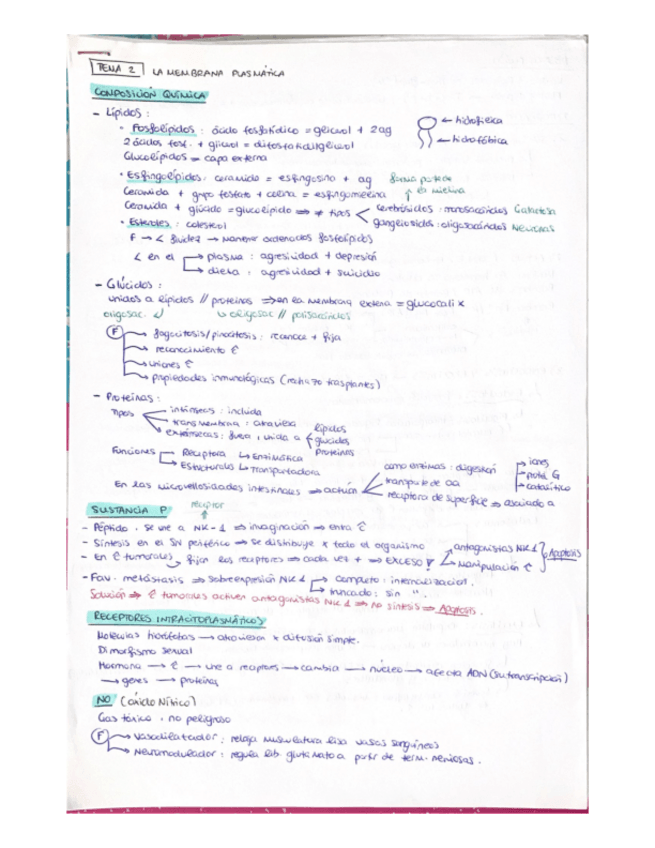 TEMA 2 LA MEMBRANA PLASMÁTICA
COMPOSICIÓN QUÍMICA
- Lípidos :
· Fosfolípidos : ácido fosfatídico = glicerol + 2ag
← hidrofílica
2 ácidos fosf. + glicerol = difosfatidilglicerol
← hidrofóbica
Glucolípidos = capa externa
· Esfingolípidos : ceramida = esfingosina + ag
forma parte de
Ceramida + grupo fosfato + colina = esfingomielina
la mielina
Ceramida + glúcido = glucolípido ⇒ ≠ tipos
cerebrósidos : monosacáridos Galactosa
gangliósidos : oligosacáridos Neuronas
· Esteroles : colesterol
F → < fluidez → mantener ordenados fosfolípidos
< en el → plasma : agresividad + depresión
→ dieta : agresividad + suicidio
- Glúcidos :
unidos a lípidos // proteínas ⇒ en la membrana externa = glucocálix
oligosac. ↲ ↳ oligosac // polisacáridos
F → fagocitosis/pinocitosis : reconoce + fija
→ reconocimiento
→ uniones
→ propiedades inmunológicas (rechazo trasplantes)
- Proteínas :
Tipos
intrínsecas : incluida
transmembrana : atraviesa
extrínsecas : fuera, unida a
lípidos
glúcidos
proteínas
Funciones
Receptora ↳ Enzimática
Estructurales ↳ Transportadora
En las microvellosidades intestinales ⇒ actúan
como enzimas : digestión
transporte de aa
receptora de superficie ⇒ asociado a
→ iones
→ prot. G
→ catalítico
SUSTANCIA P
receptor
- Péptido. Se une a NK-1 ⇒ invaginación ⇒ entra
- Síntesis en el SN periférico ⇒ se distribuye x todo el organismo
- En tumorales, fijan los receptores ⇒ cada vez + ⇒ EXCESO
antagonistas NK1
Manipulación
Apoptosis
- Fav. metástasis ⇒ Sobreexpresión NK1
→ completo : internalización.
→ truncado : sin " .
Solución ⇒ tumorales activen antagonistas NK1 ⇒ no síntesis ⇒ Apoptosis.
RECEPTORES INTRACITOPLASMÁTICOS
Moléculas hidrófobas → atraviesan x difusión simple.
Dimorfismo sexual
Hormona → → une a receptores → cambia → núcleo → afecta ADN (su transcripción)
→ genes → proteína
NO (óxido Nítrico)
Gas tóxico, no peligroso
F → Vasodilatador : relaja musculatura lisa vasos sanguíneos
→ Neuromodulador : regula lib. glutamato a partir de term. nerviosas.